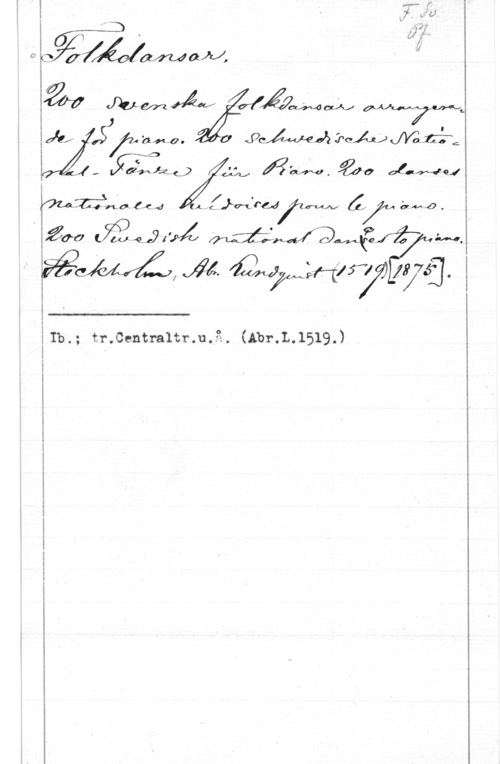 F. Sv.
Pf
Folkdansar.
200 svenska folkdansar arrangera-
de för piano. 200 schwedische Natio-
nal-Tänze für Piano. 200 danses
nationales suédoises pour le piano.
200 Swedish national dances to piano.
Stockholm, Ab. Lundquist (1519) [1875].
Ib.; tr.Centraltr.u.å. (Abr.L.1519.)